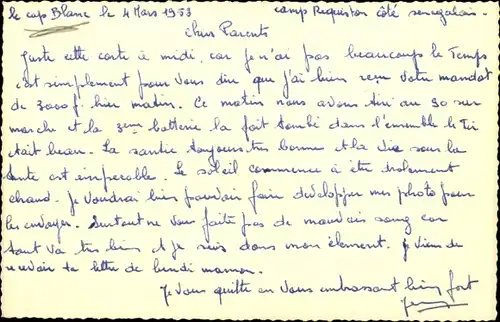 le cap Blanc le 4 Mars 1953 camp Requiston côté senegalais.
chers Parents
Juste cette carte à midi, car je n'ai pas beaucoup le temps
c'est simplement pour vous dire que j'ai bien reçu votre mandat
de 3000f. hier matin. Ce matin nous avons tiré au 30 sur
marche et la 3eme batterie la fait tombé dans l'ensemble le tir
était beau. La santée toujours très bonne et la vie sous la
tente est impecable. Le soleil commence à être drolement
chaud. Je voudrai bien pouvoir faire developper mes photo pour
les envoyer. Surtout ne vous faite pas de mauvais sang car
tout va très bien et je suis dans mon élement. Je viens de
recevoir ta lettre de lundi maman.
Je vous quitte en vous embrassant bien fort